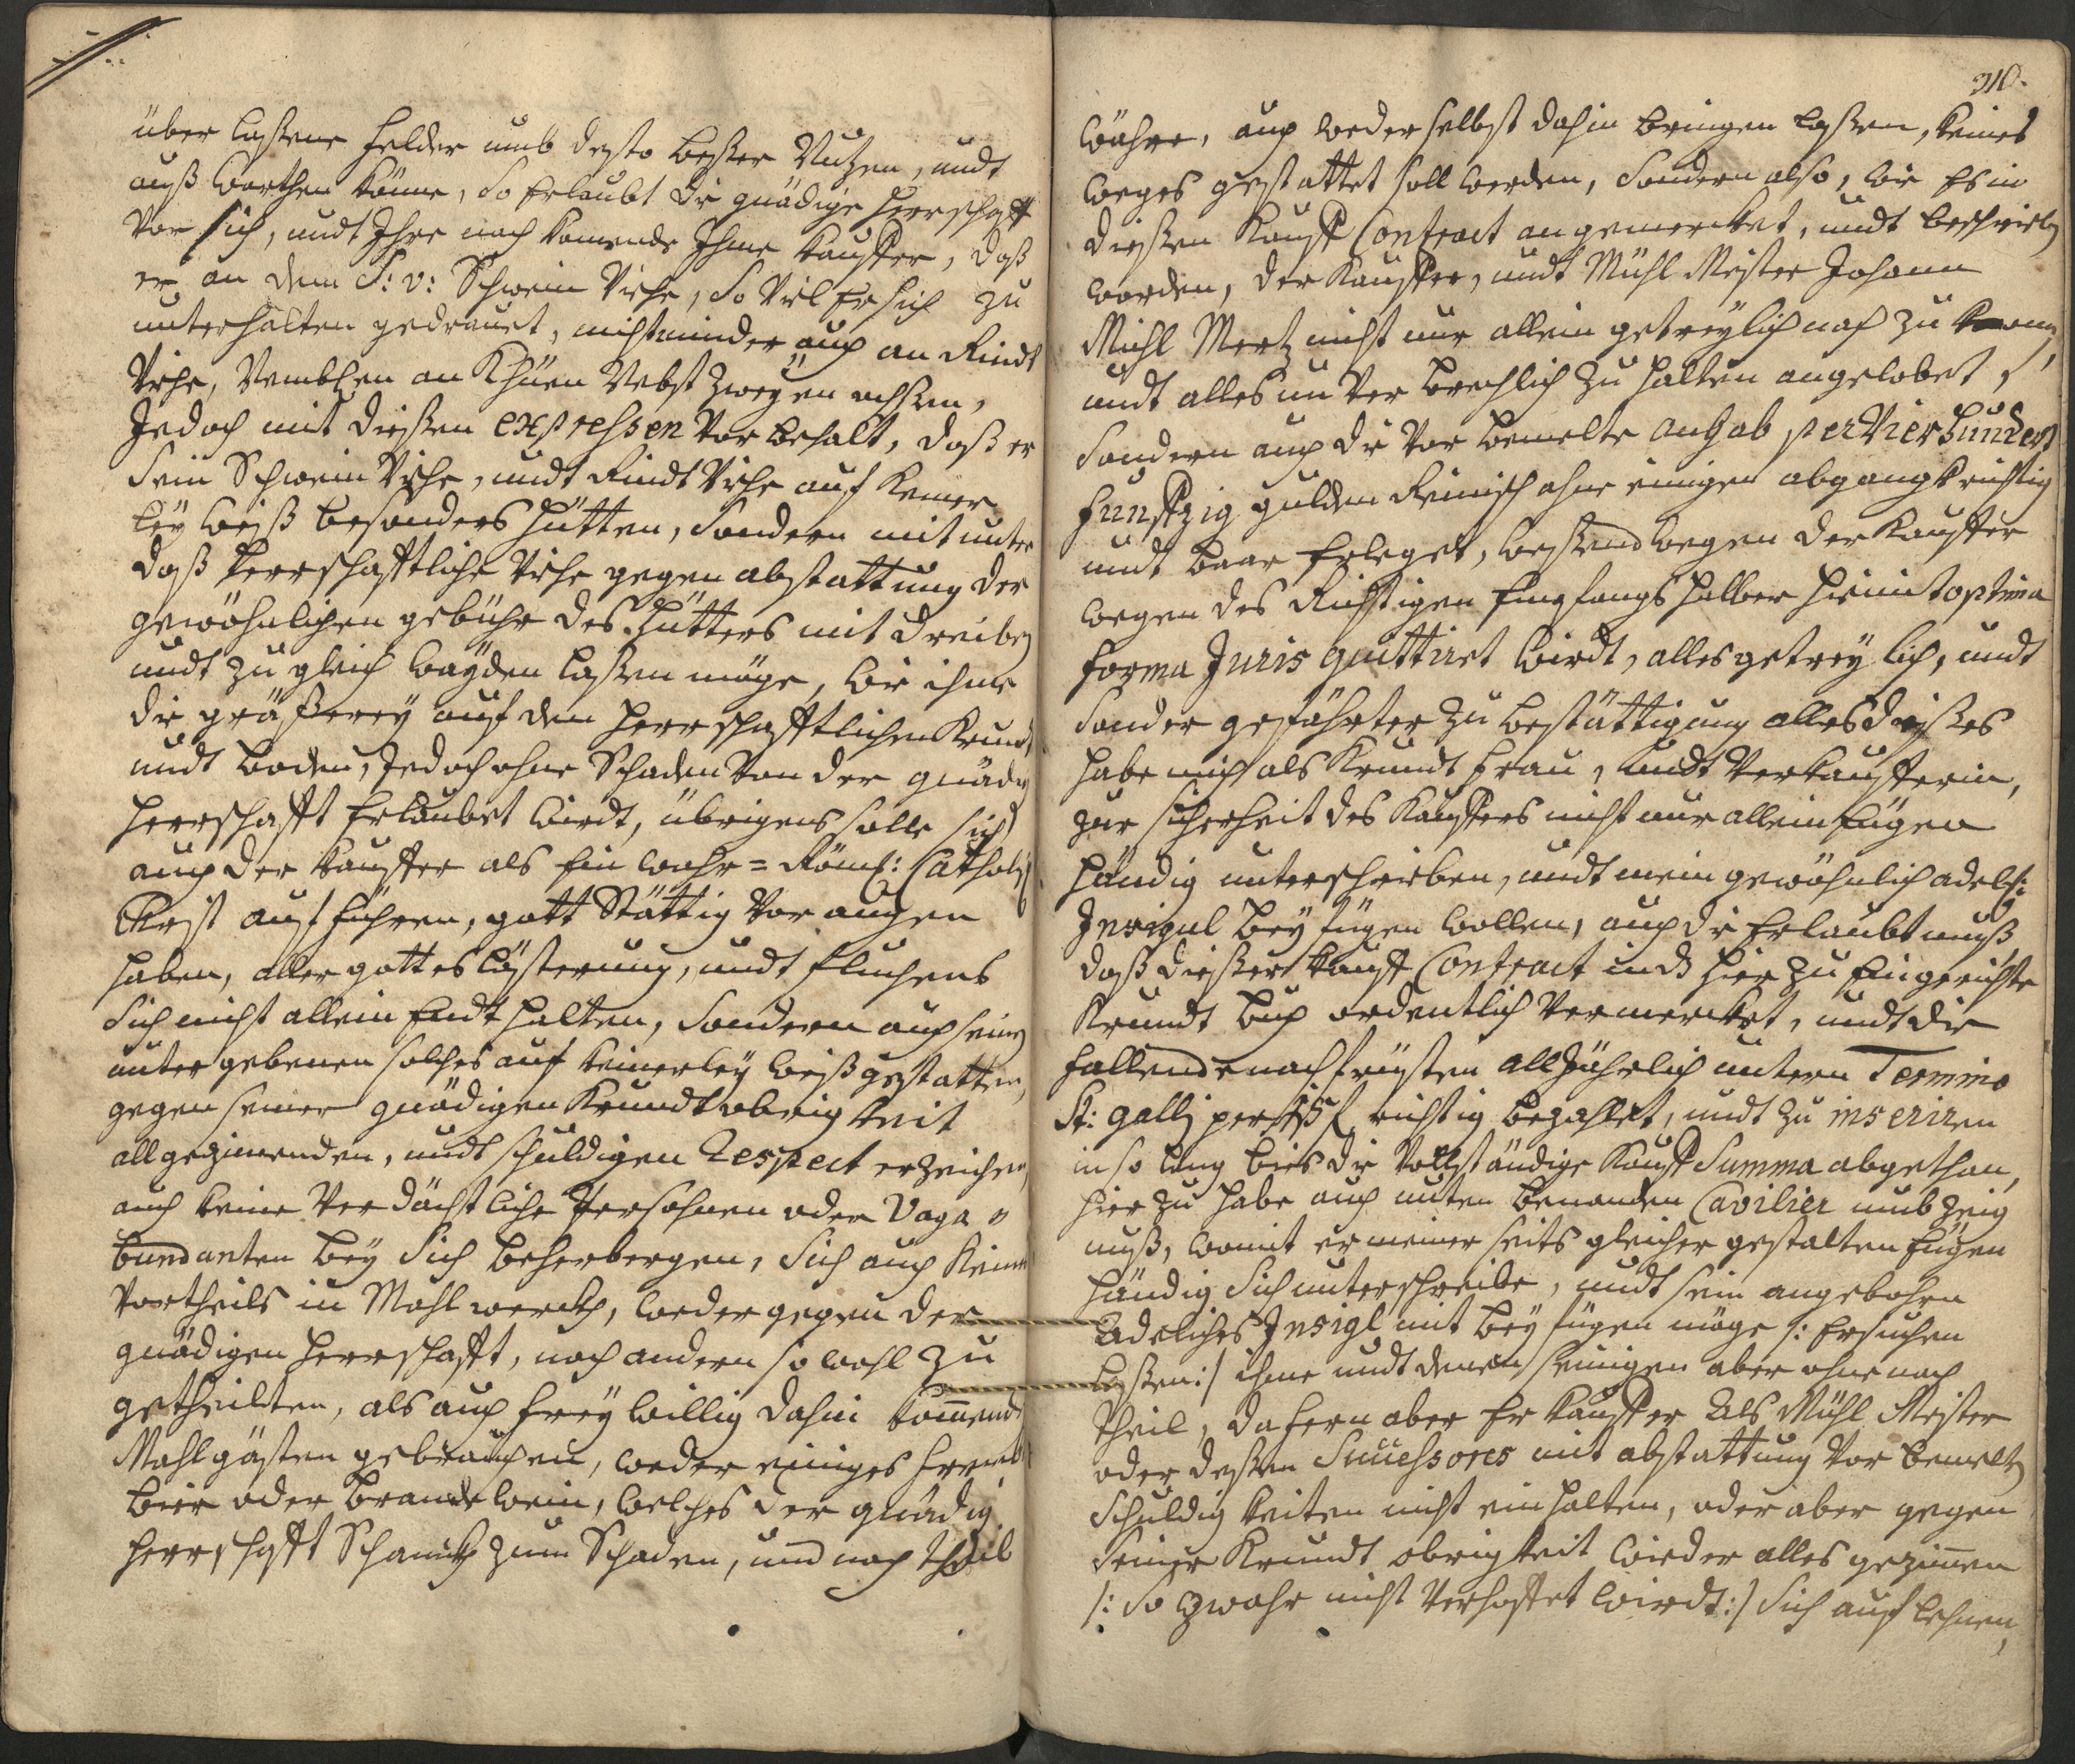 über lassene felder umb desto besser Nutzen, undt
auß warthen könne, So Erlaubt die gnädige Herrschafft
Vor sich, undt Ihre nach komende Ihme Kauffer, daß
er an dem S: v: Schwein Viehe, So Viel Er sich zu
unterhalten gedrauet, nicht minder auch an Rindt
Viehe, Nemblichen an Khüen Nebst Zweyen ochsen,
Jedoch mit diesen expressen Vorbehalt, daß er
Sein Schwein Viehe, undt Rindt Viehe auf Keiner
ley weiß besonders hütten, Sondern mit unter
daß Herrschafftliche Viehe gegen abstattung der
gewöhnlichen gebühr des Hütters mit dreiben
undt zu gleich wayden lassen möge, wie ihme
die gräßerey auf dem Herrschafftlichen Krundt
undt boden, Jedoch ohne Schaden Von der gnädig
Herrschafft Erlaubet wirdt, übrigens solle sich
auch der Kauffer als Ein wahr = Röml: Catholisch
Christ aufführen, gott Stättig Vor augen
haben, aller gottes lästerung, undt fluchens
Sich nicht allein Endt halten, Sondern auch seinen
untergebenen solches auf keinerley weiß gestatten,
gegen seiner gnädigen Krundt obrigkeit
all gezimenden, undt schuldigen Respect erzeichen,
auch keine Verdächtliche Persohnen oder Vaga "
bundanten bey Sich beherbergen, Sich auch Keinen
Vortheils in Mahl werckh, weder gegen der
gnädigen Herrschafft, noch andern so wohl zu
getheilten, als auch freywillig dahin komende
Mahlgästen gebrauchen, weder einiges frembdt
bier oder brandtwein, welches der gnädig
Herrschafft Schanckh zum Schaden, und nach theil
310.
währe, auch weder selbst dahin bringen lassen, keines
weeges gestattet soll werden, Sondern also, wie Es in
diesen Kauff Contract angemercket, undt beschrieben
worden, der Kauffer, undt Mühl Meister Johann
Michl Mertz nicht nur allein getreylich nach zu kommen,
undt alles unVerbrechlich zu halten angelobet,
Sondern auch die Vor bemelte angab per Vierhundert
funffzig gulden Reinisch ohne einigen abgangk richtig
undt baar Erleget, wessendwegen der Kauffer
wegen des Richtigen Empfangs halber hiemit optima
forma Juris quittiret wirdt, alles getreylich, undt
Sonder gefährter zu bestättigung alles dieses
habe mich als Krundt frau, undt Verkaufferin,
zur sicherheit des Kauffers nicht nur allein Eigen
händig unterschrieben, undt mein gewöhnlich adelich:
Insigul bey fügen wollen, auch die Erlaubtnuß,
daß dieser Kauff Contract in das hier zu Eingerichte
Krundt buch ordentlich Vermercket, undt die
fallende nachfrüsten alljährlich untern Termino
St: galli per 15 f. richtig bezahlet, undt zu inseriren
in so lang bies die Vollständige Kauff Summa abgethan,
hier zu habe auch unten benanden Cavilier umb Zeig
nuß, womit er meiner seits gleicher gestalten Eigen
händig Sich unterschreibe, undt sein angebohren
Adeliches Insigl mit bey fügen möge /: Ersuchen
lassen :/ ihme undt denen seinigen aber ohne nach
theil, dafern aber Er Kauffer Als Mühl Meister
oder dessen Successores mit abstattung Vor bemelten
Schuldigkeiten nicht einhalten, oder aber gegen
Seiner Krundt obrigkeit wieder alles gezimen
/: So zwahr nicht Verhoffet wirdt :/ Sich auff lehnen,